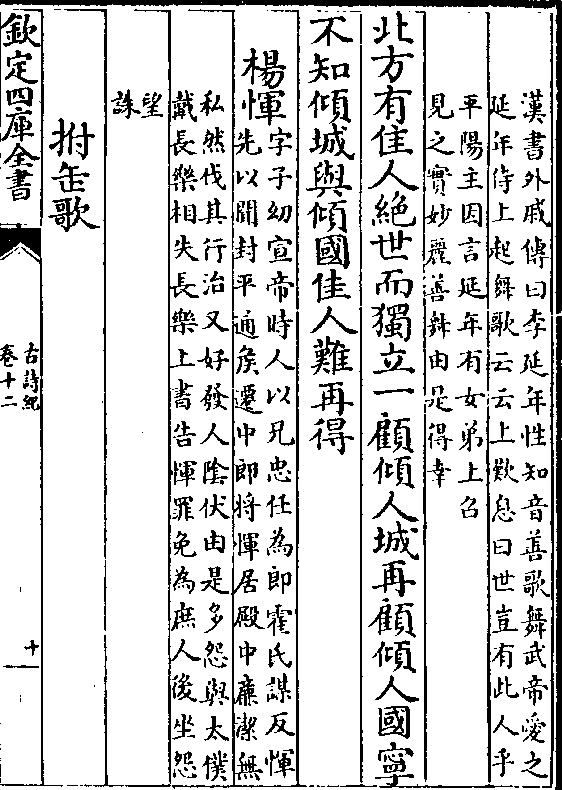 漢書外戚傳曰李延年性知音善歌舞武帝愛之
延年侍上起舞歌云云上歎息曰世豈有此人乎
平陽主因言延年有女弟上召
見之實妙麗善舞由是得幸
北方有佳人絶世而獨立一顧傾人城再顧傾人國寧
不知傾城與傾國佳人難再得
楊惲
字子幼宣帝時人以兄忠任為郎霍氏謀反惲
先以聞封平通侯遷中郎將惲居殿中亷潔無
私然伐其行治又好發人陰伏由是多怨與太僕
戴長樂相失長樂上書告惲罪免為庶人後坐怨
望
誅
拊缶歌
欽定四庫全書
古詩紀
卷十二
十